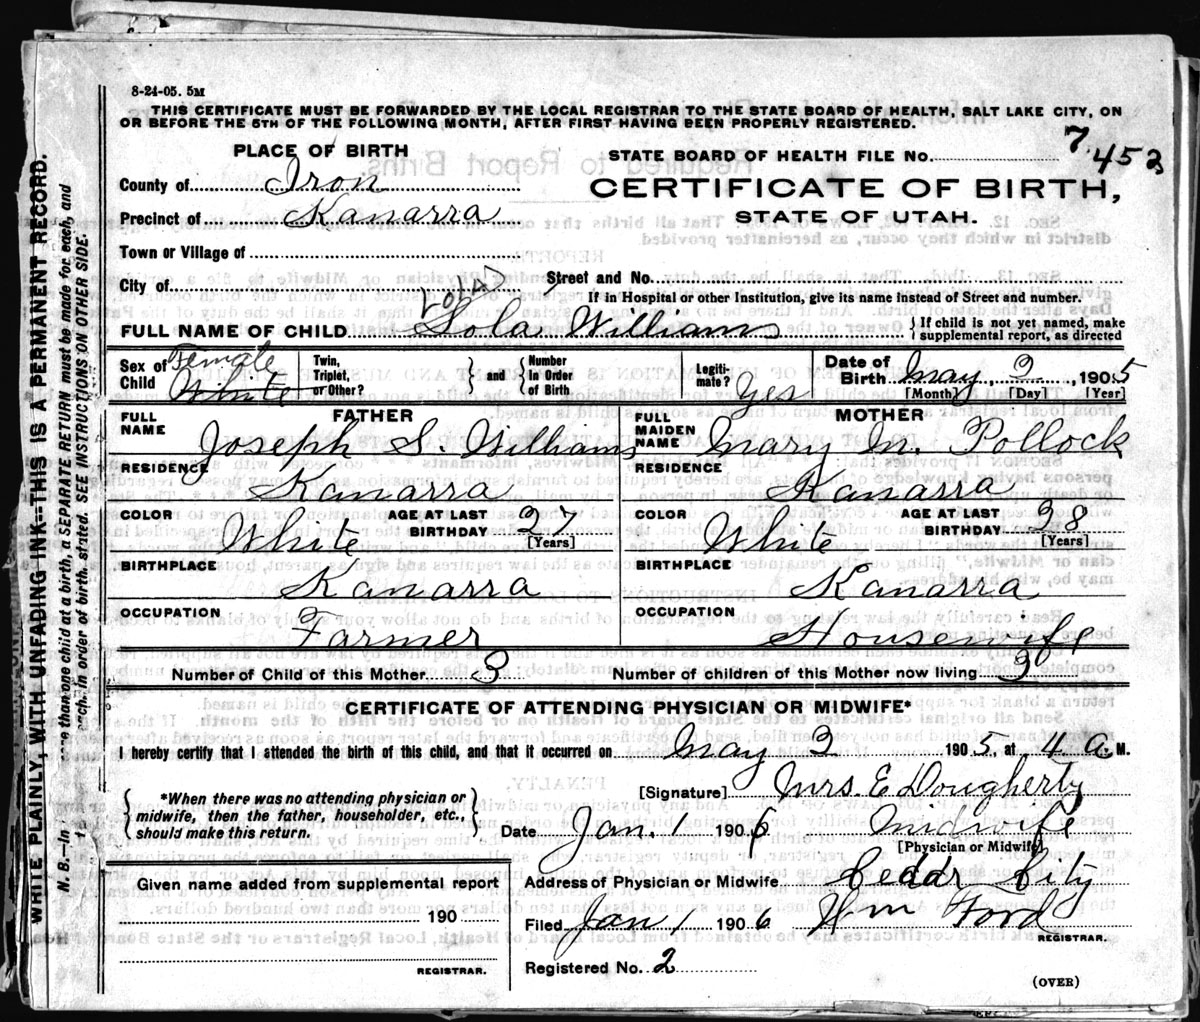 8-24-05. 5M
THIS CERTIFICATE MUST BE FORWARDED BY THE LOCAL REGISTRAR TO THE STATE BOARD OF HEALTH, SALT LAKE CITY, ON
OR BEFORE THE 5TH OF THE FOLLOWING MONTH, AFTER FIRST HAVING BEEN PROPERLY REGISTERED.
PLACE OF BIRTH
County of Iron
Precinct of Kanarra
Town or Village of
City of
STATE BOARD OF HEALTH FILE No. 7.452
CERTIFICATE OF BIRTH,
STATE OF UTAH.
Street and No.
If in Hospital or other Institution, give its name instead of Street and number.
(Lola)
FULL NAME OF CHILD Lola Williams
If child is not yet named, make
supplemental report, as directed
Sex of Child Female White
Twin, Triplet, or Other?
and
Number In Order of Birth
Legiti-mate? Yes
Date of Birth May 2, 1905
[Month] [Day] [Year]
FATHER
FULL NAME Joseph S. Williams
RESIDENCE Kanarra
COLOR White
AGE AT LAST BIRTHDAY 27
[Years]
BIRTHPLACE Kanarra
OCCUPATION Farmer
MOTHER
FULL MAIDEN NAME Mary M. Pollock
RESIDENCE Kanarra
COLOR White
AGE AT LAST BIRTHDAY 28
[Years]
BIRTHPLACE Kanarra
OCCUPATION Housewife
Number of Child of this Mother 3
Number of children of this Mother now living 3
CERTIFICATE OF ATTENDING PHYSICIAN OR MIDWIFE*
I hereby certify that I attended the birth of this child, and that it occurred on May 2 1905, at 4 a. M.
*When there was no attending physician or
midwife, then the father, householder, etc.,
should make this return.
[Signature] Mrs. E Dougherty
Date Jan. 1 1906 Midwife
[Physician or Midwife]
Given name added from supplemental report
190
REGISTRAR.
Address of Physician or Midwife Cedar City
Filed Jan 1 1906 Wm Ford
REGISTRAR.
Registered No. 2
(OVER)
WRITE PLAINLY, WITH UNFADING INK—THIS IS A PERMANENT RECORD.
N. B.—In than one child at a birth, a SEPARATE RETURN must be made for each, and
each, in order of birth, stated. SEE INSTRUCTIONS ON OTHER SIDE.